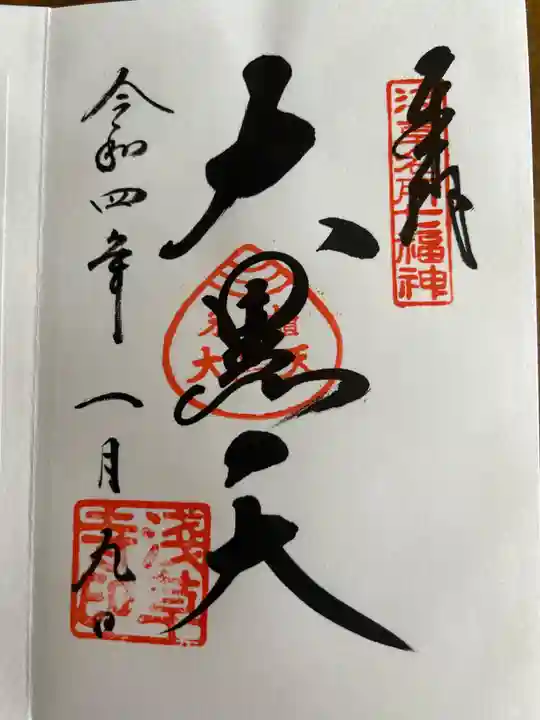 奉拝
浅草名所七福神
大黒天
米櫃
大黒天
令和四年一月九日
浅草寺印